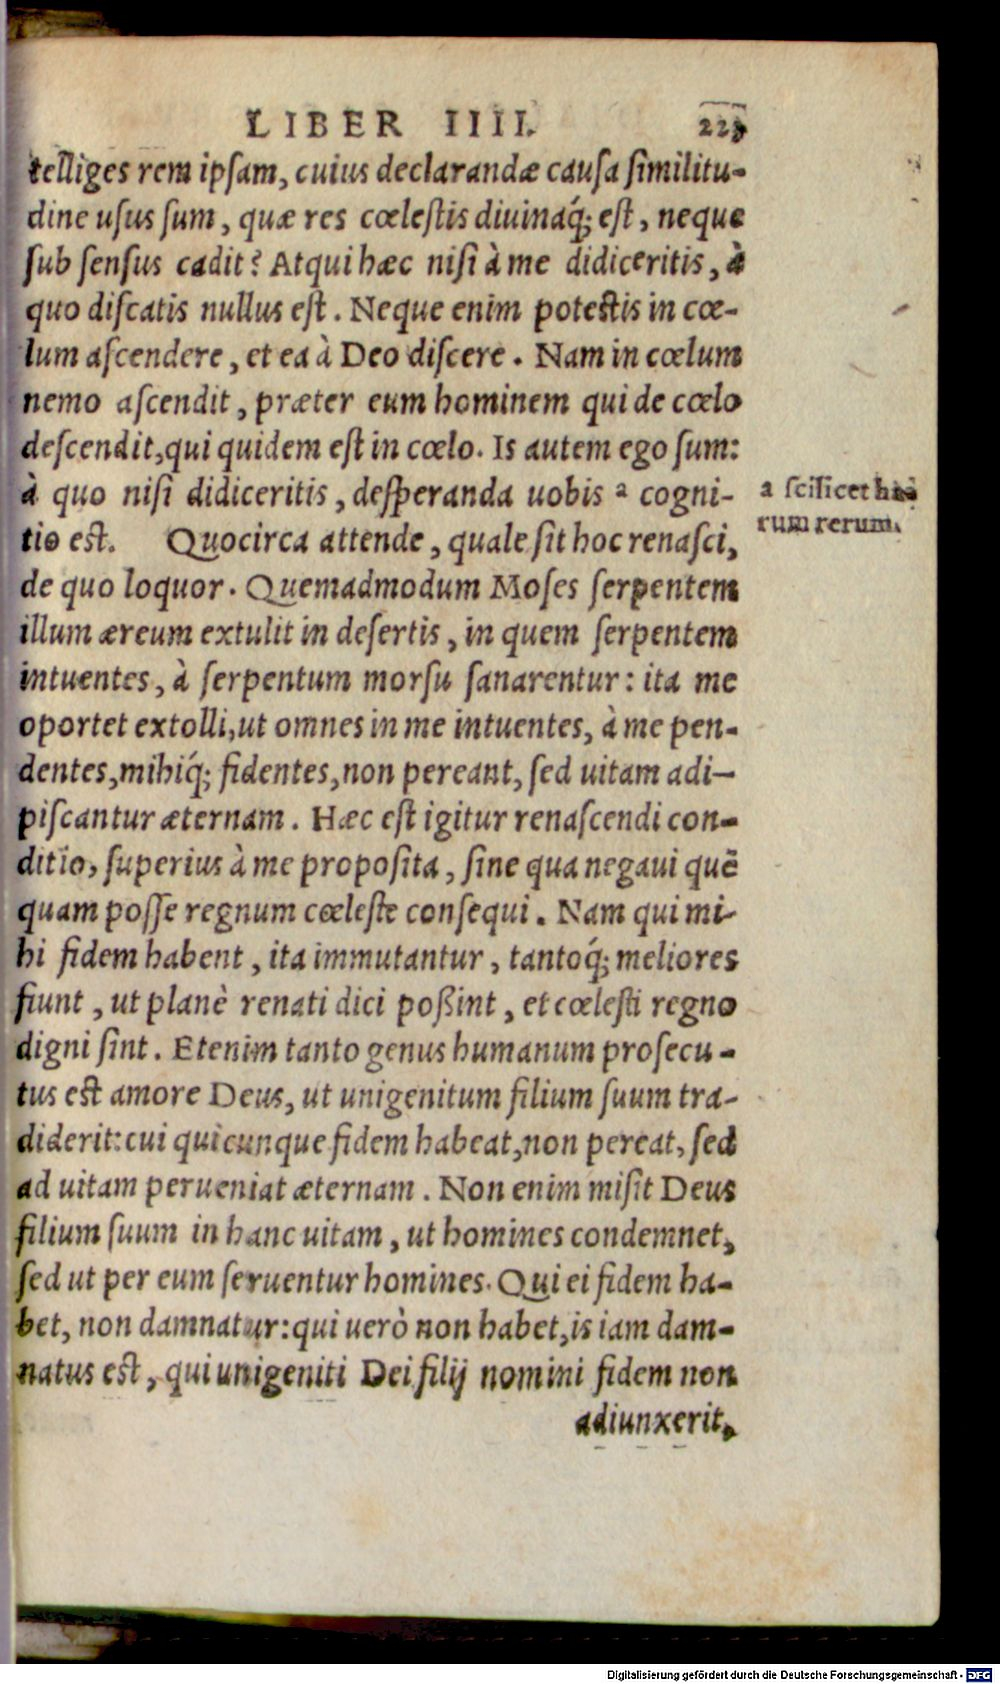 LIBER IIII.
telliges rem ipsam, cuius declarandæ causa similitu-
dine usus sum, quæ res cœlestis diuinaq́; est, neque
sub sensus cadit? Atqui hæc nisi à me didiceritis, à
quo discatis nullus est. Neque enim potestis in cœ-
lum ascendere, et ea à Deo discere. Nam in cœlum
nemo ascendit, præter eum hominem qui de cœlo
descendit, qui quidem est in cœlo. Is autem ego sum:
à quo nisi didiceritis, desperanda uobis ª cogni-
tio est. Quocirca attende, quale sit hoc renasci,
de quo loquor. Quemadmodum Moses serpentem
illum æreum extulit in desertis, in quem serpentem
intuentes, à serpentum morsu sanarentur: ita me
oportet extolli, ut omnes in me intuentes, à me pen-
dentes, mihiq́; fidentes, non pereant, sed uitam adi-
piscantur æternam. Hæc est igitur renascendi con-
ditio, superius à me proposita, sine qua negaui quẽ
quam posse regnum cœleste consequi. Nam qui mi-
hi fidem habent, ita immutantur, tantoq́; meliores
fiunt, ut planè renati dici poßint, et cœlesti regno
digni sint. Etenim tanto genus humanum prosecu-
tus est amore Deus, ut unigenitum filium suum tra-
diderit: cui quicunque fidem habeat, non pereat, sed
ad uitam perueniat æternam. Non enim misit Deus
filium suum in hanc uitam, ut homines condemnet,
sed ut per eum seruentur homines. Qui ei fidem ha-
bet, non damnatur: qui uerò non habet, is iam dam-
natus est, qui unigeniti Dei filij nomini fidem non
adiunxerit.
a scilicet
rum rerum.
Digitalisierung gefördert durch die Deutsche Forschungsgemeinschaft - DFG